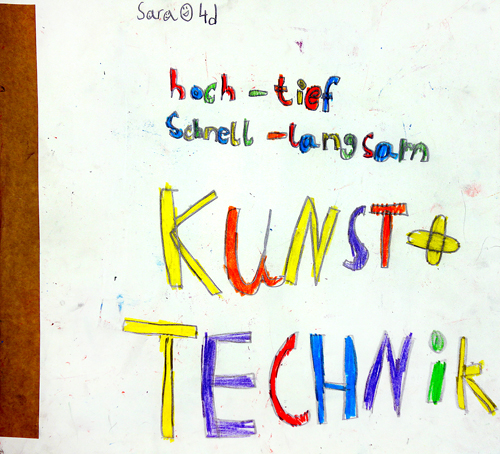 Sara☺4d
hoch - tief
Schnell - langsam
KUNST+
TECHNiK